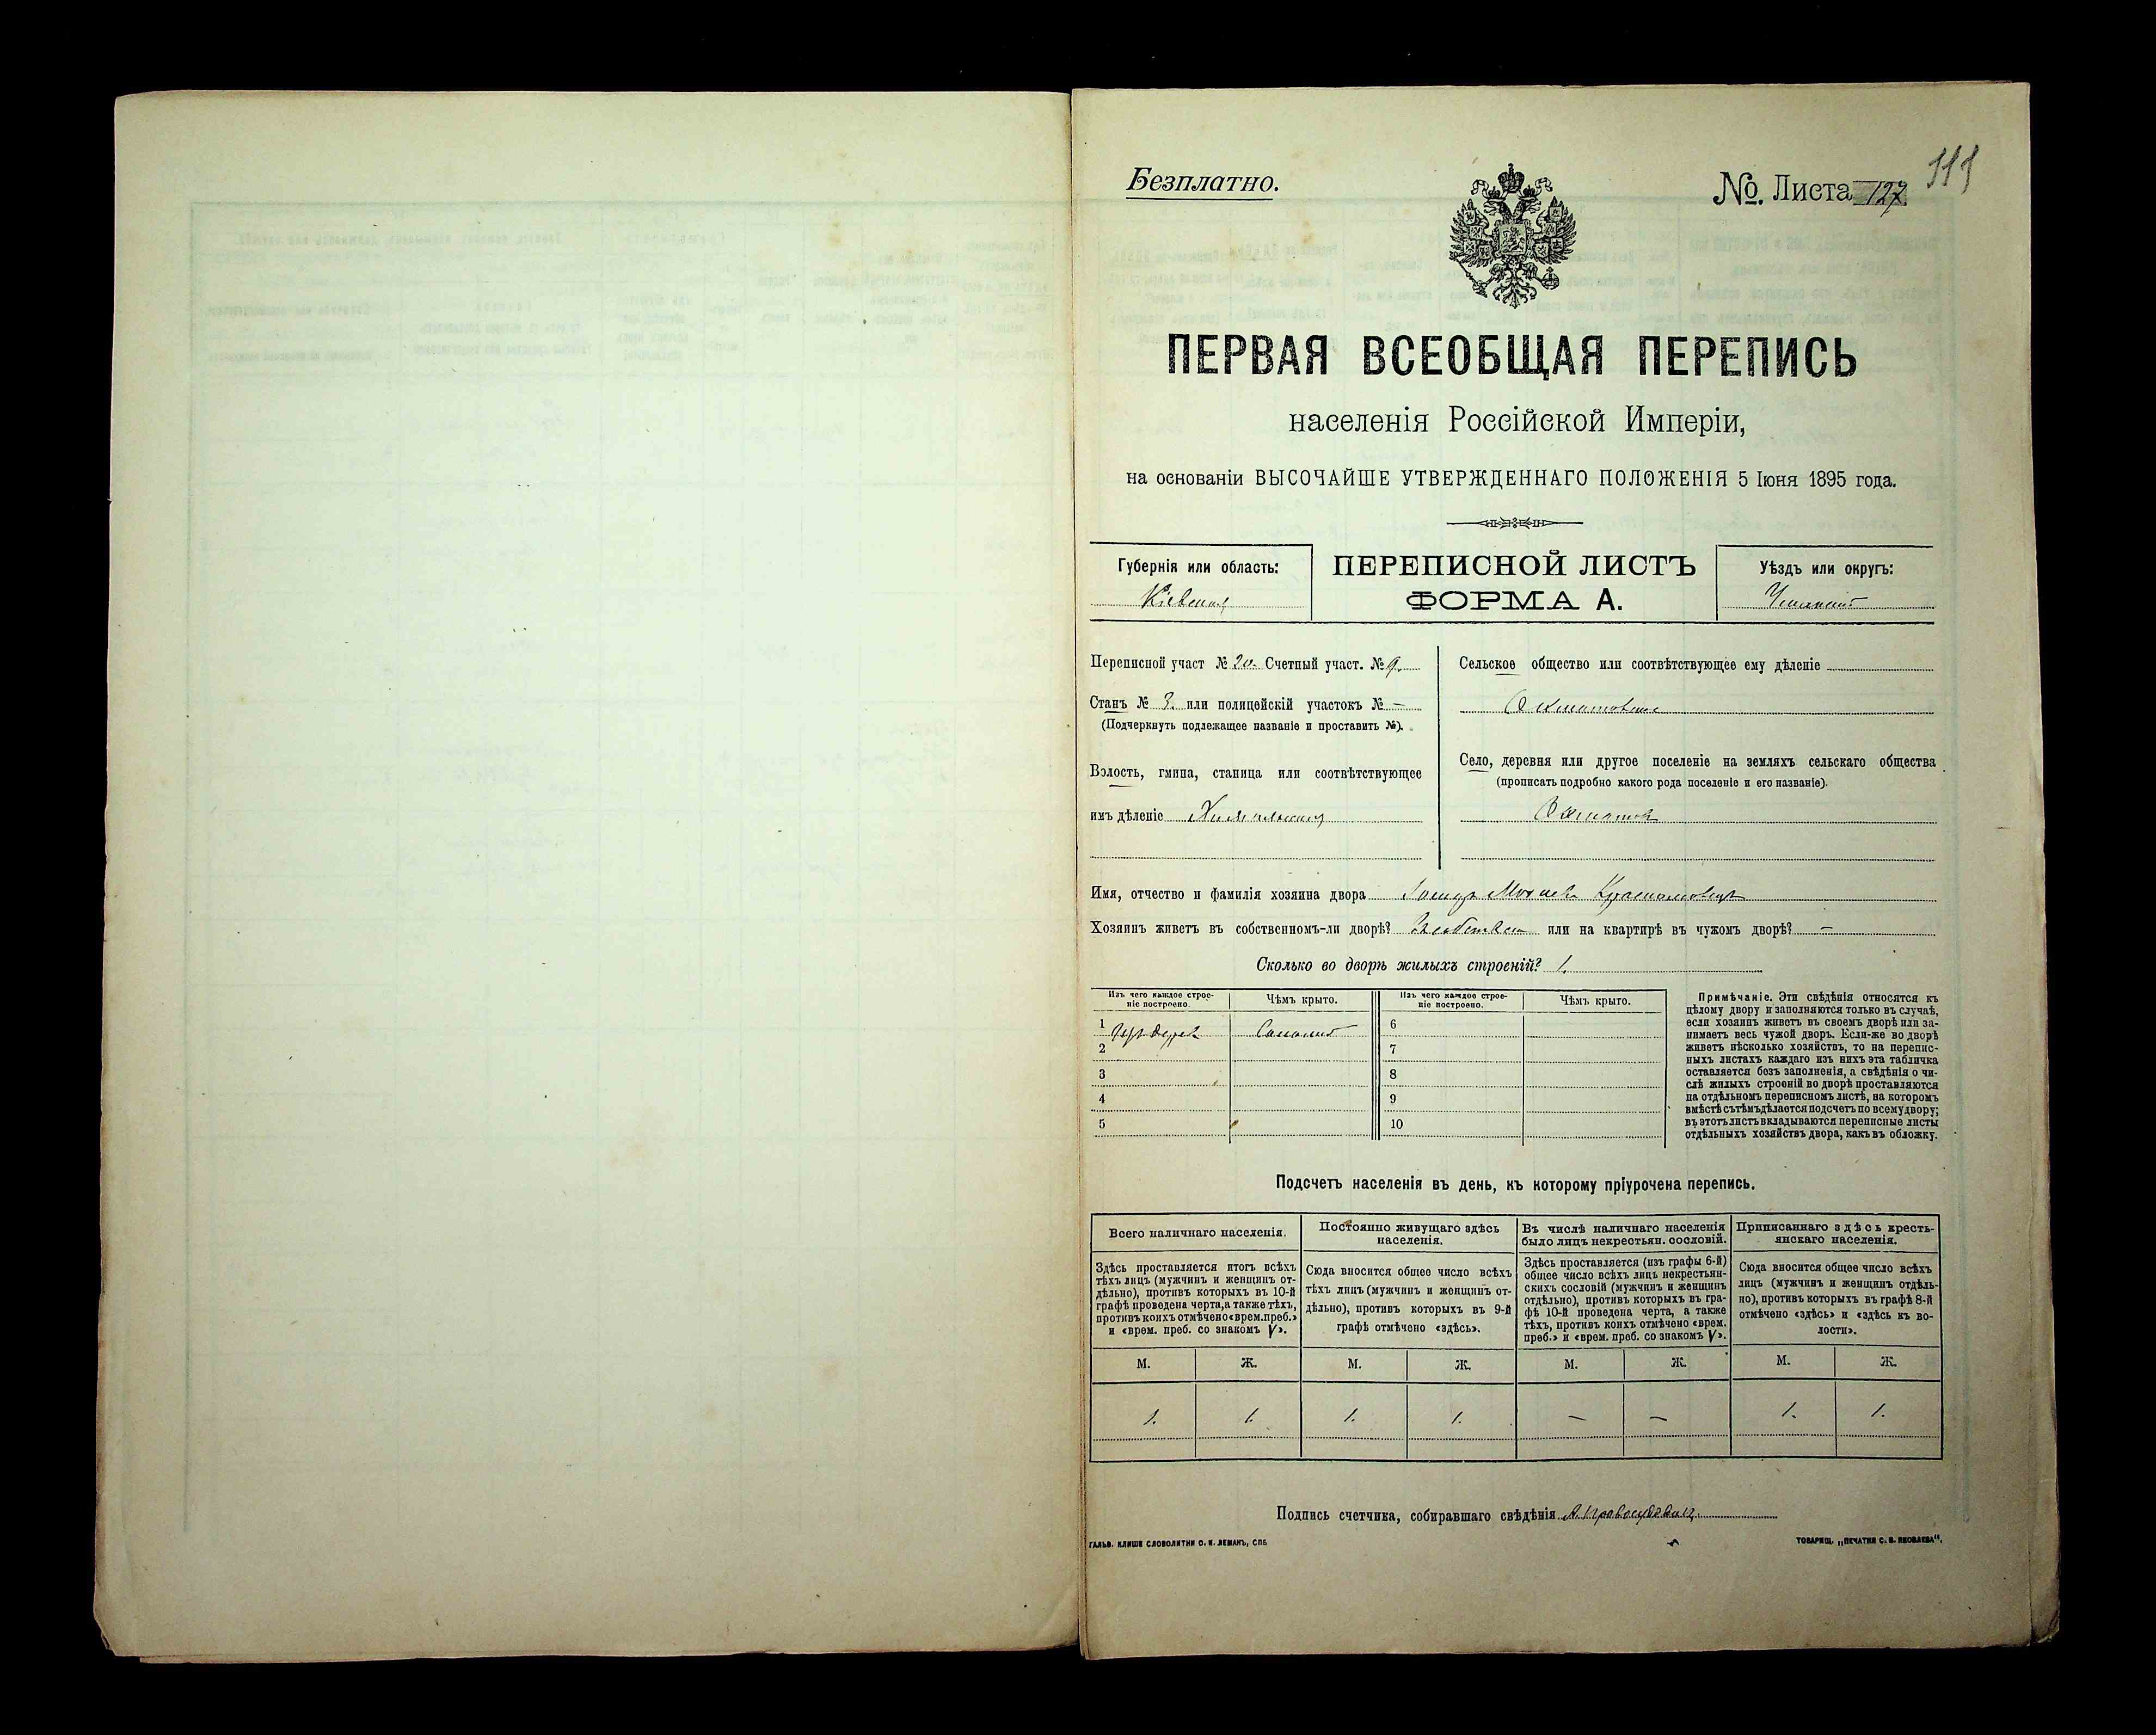 Безплатно.
№. Листа 127
111
ПЕРВАЯ ВСЕОБЩАЯ ПЕРЕПИСЬ
населенія Россійской Имперіи,
на основаніи ВЫСОЧАЙШЕ УТВЕРЖДЕННАГО ПОЛОЖЕНІЯ 5 Іюня 1895 года.
Губернія или область:
Кіевская
ПЕРЕПИСНОЙ ЛИСТЪ
ФОРМА А.
Уѣздъ или округъ:
Уманскій
Переписной участ № 20. Счетный участ. № 9.
Станъ № 3. или полицейскій участокъ № —
(Подчеркнуть подлежащее названіе и проставить №).
Волость, гмина, станица или соотвѣтствующее
имъ дѣленіе
Сельское общество или соотвѣтствующее ему дѣленіе
Село, деревня или другое поселеніе на земляхъ сельскаго общества
(прописать подробно какого рода поселеніе и его названіе).
Имя, отчество и фамилія хозяина двора
Хозяинъ живетъ въ собственномъ-ли дворѣ? или на квартирѣ въ чужомъ дворѣ? —
Сколько во дворѣ жилыхъ строеній? 1.
Изъ чего каждое строе-
ніе построено.
Чѣмъ крыто.
Изъ чего каждое строе-
ніе построено.
Чѣмъ крыто.
1 Соломой 6
2 7
3 8
4 9
5 10
Примѣчаніе. Эти свѣдѣнія относятся къ
цѣлому двору и заполняются только въ случаѣ,
если хозяинъ живетъ въ своемъ дворѣ или за-
нимаетъ весь чужой дворъ. Если-же во дворѣ
живетъ нѣсколько хозяйствъ, то на перепис-
ныхъ листахъ каждаго изъ нихъ эта табличка
оставляется безъ заполненія, а свѣдѣнія о чи-
слѣ жилыхъ строеній во дворѣ проставляются
на отдѣльномъ переписномъ листѣ, на которомъ
вмѣстѣ съ тѣмъ дѣлается подсчетъ по всему двору;
въ этотъ листъ вкладываются переписные листы
отдѣльныхъ хозяйствъ двора, какъ въ обложку.
Подсчетъ населенія въ день, къ которому пріурочена перепись.
Всего наличнаго населенія.
Здѣсь проставляется итогъ всѣхъ
тѣхъ лицъ (мужчинъ и женщинъ от-
дѣльно), противъ которыхъ въ 10-й
графѣ проведена черта, а также тѣхъ,
противъ коихъ отмѣчено «врем. преб.»
и «врем. преб. со знакомъ V».
Постоянно живущаго здѣсь
населенія.
Сюда вносится общее число всѣхъ
тѣхъ лицъ (мужчинъ и женщинъ от-
дѣльно), противъ которыхъ въ 9-й
графѣ отмѣчено «здѣсь».
Въ числѣ наличнаго населенія
было лицъ некрестьян. сословій.
Здѣсь проставляется (изъ графы 6-й)
общее число всѣхъ лицъ некрестьян-
скихъ сословій (мужчинъ и женщинъ
отдѣльно), противъ которыхъ въ гра-
фѣ 10-й проведена черта, а также
тѣхъ, противъ коихъ отмѣчено «врем.
преб.» и «врем. преб. со знакомъ V».
Приписаннаго здѣсь кресть-
янскаго населенія.
Сюда вносится общее число всѣхъ
лицъ (мужчинъ и женщинъ отдѣль-
но), противъ которыхъ въ графѣ 8-й
отмѣчено «здѣсь» и «здѣсь къ во-
лости».
М. Ж. М. Ж. М. Ж. М. Ж.
1. 1. 1. 1. — — 1. 1.
Подпись счетчика, собиравшаго свѣдѣнія
ГАЛЬВ. КЛИШЕ СЛОВОЛИТНИ О. И. ЛЕМАНЪ, СПБ
ТОВАРИЩ. „ПЕЧАТНЯ С. П. ЯКОВЛЕВА".